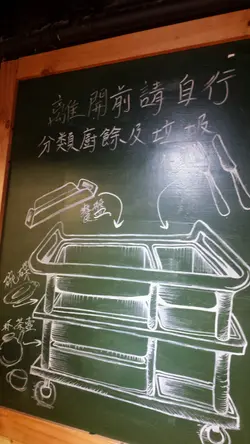 離開前請自行
分類廚餘及垃圾
餐盤
碗碟
杯茶壺